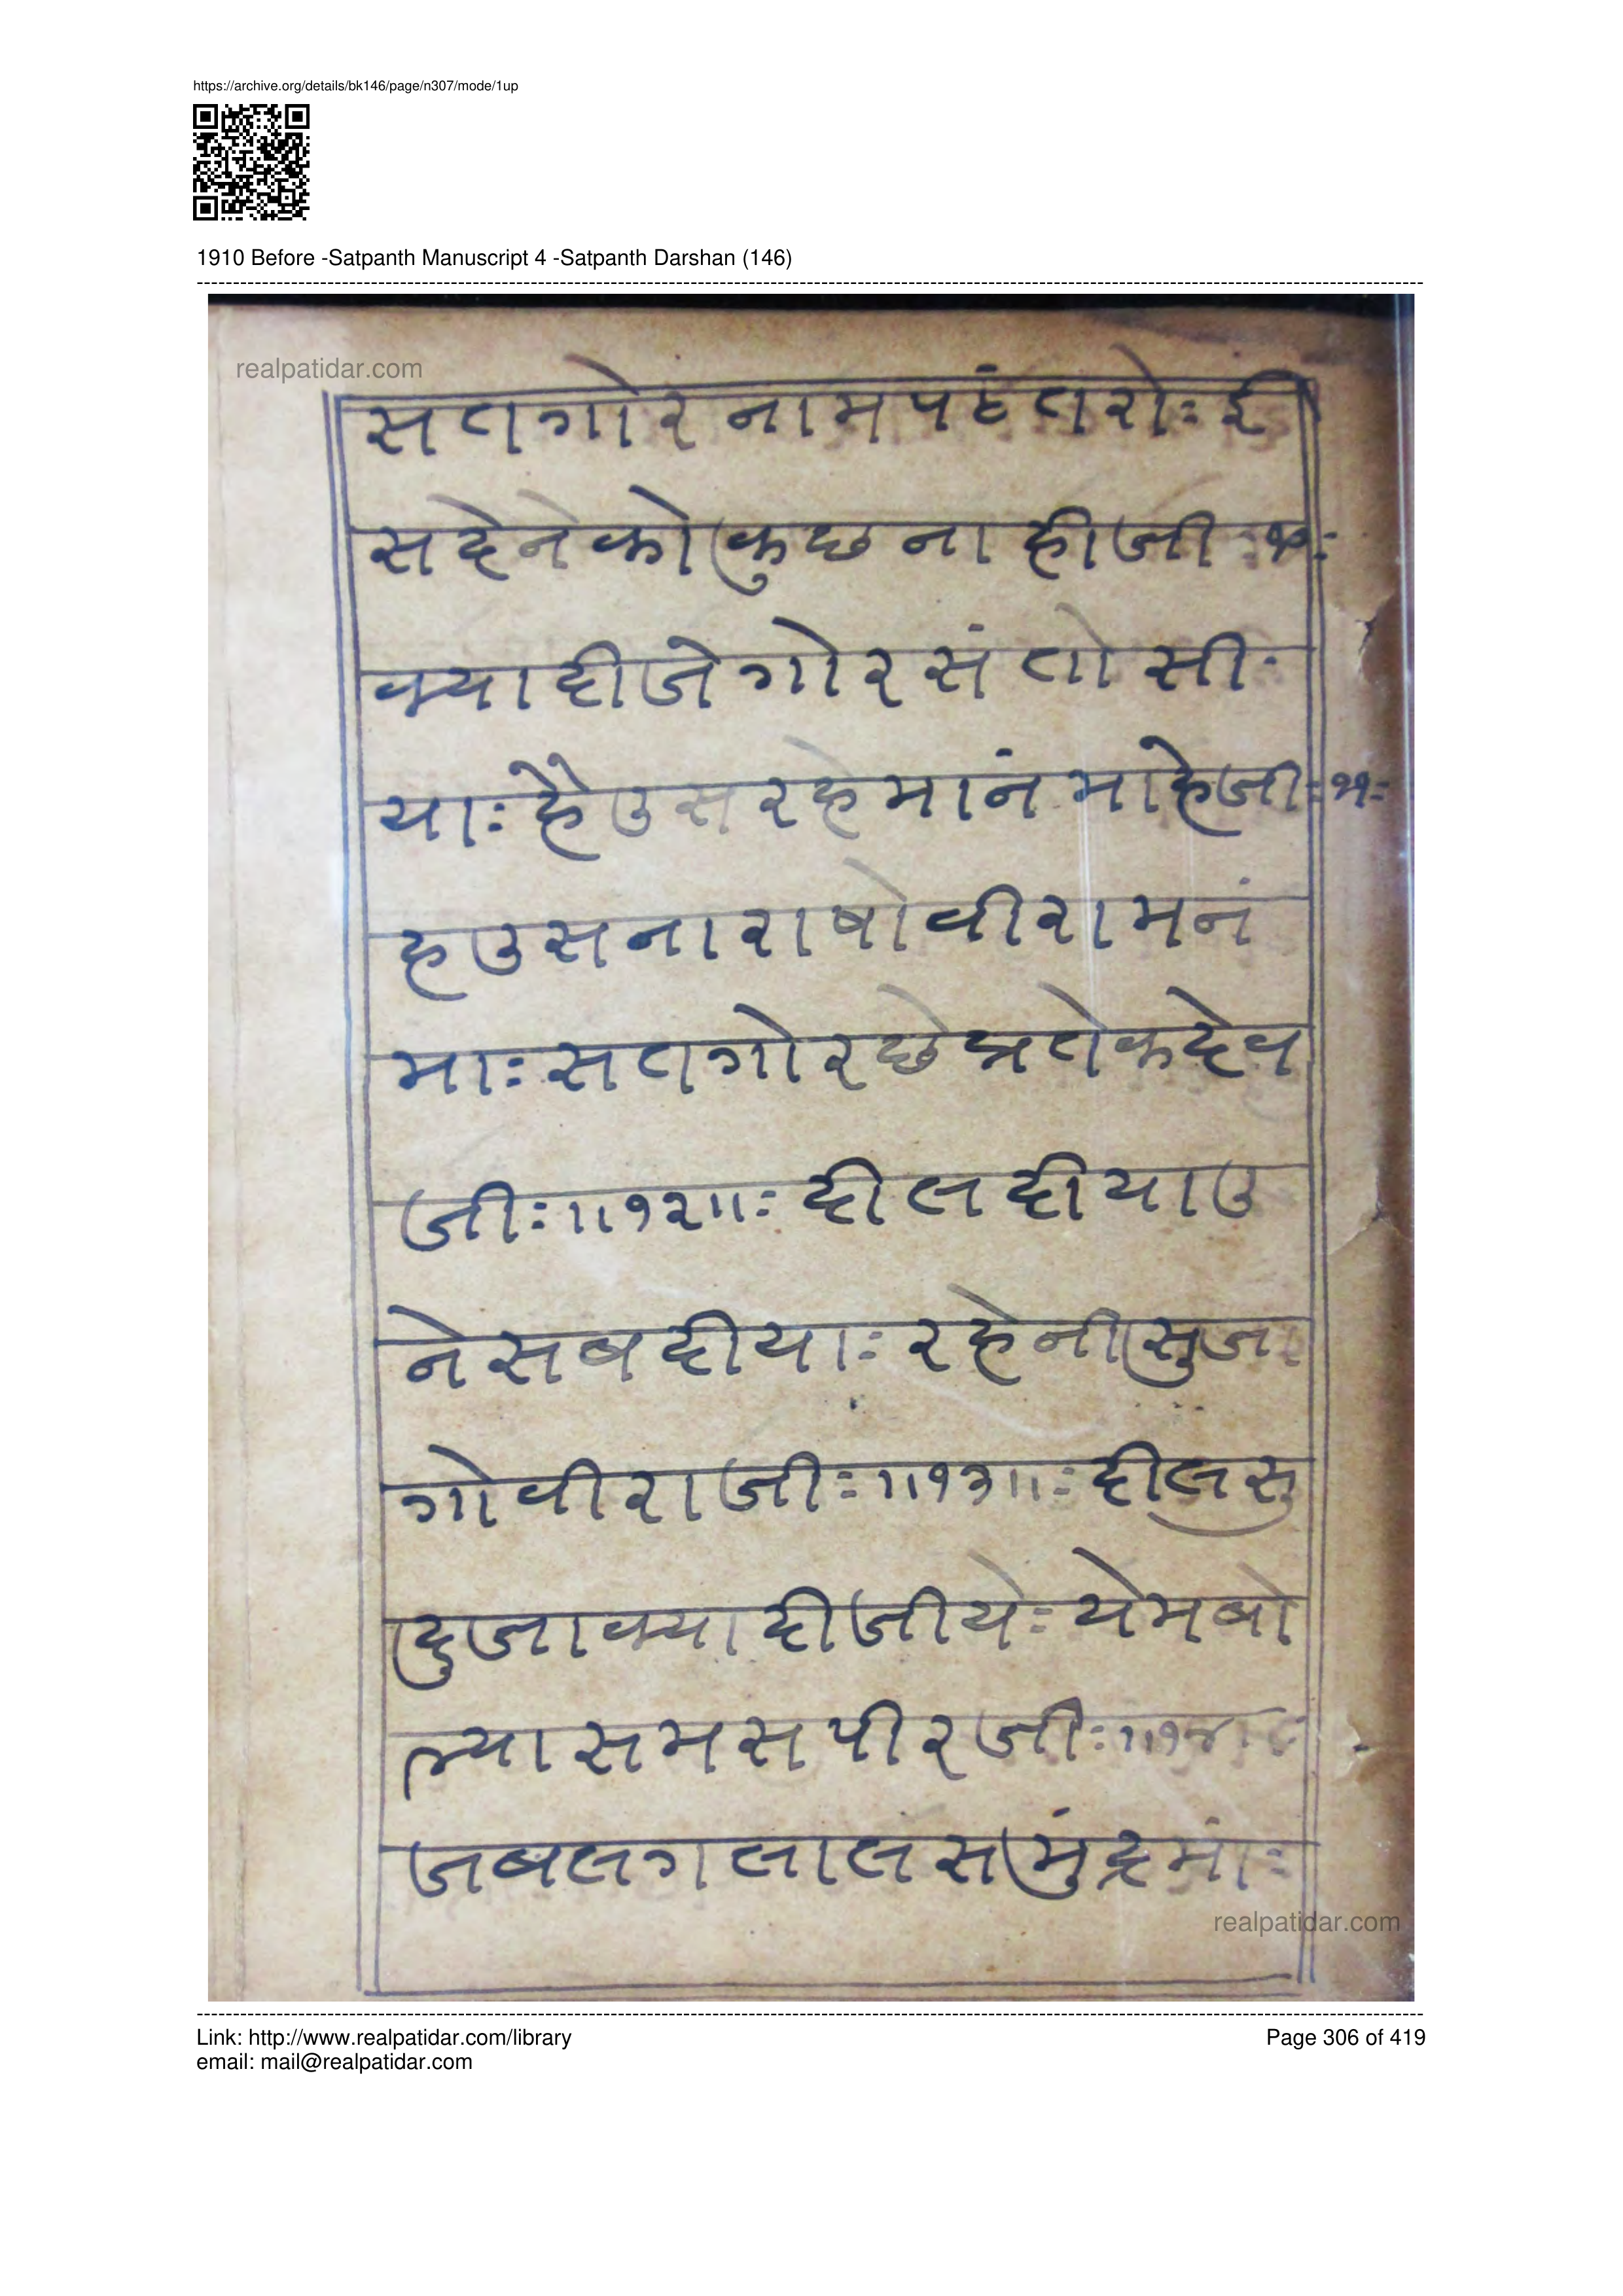 https://archive.org/details/bk146/page/n307/mode/1up
1910 Before -Satpanth Manuscript 4 -Satpanth Darshan (146)
realpatidar.com
सतगोरनामपटंतरोः ई
सदेनेकोकुछनाहीजीः१०ः
क्यादीजेगोरसंतोसीः
याः हैउसरहेमांनमाहेजीः११ः
हउसनाराषोवीरामनं
माः सतगोरछेप्रतेकदेव
जीः॥१२॥ः दीलदीयाउ
नेसबदीयाः रहेनीसुजा
गोवीराजीः॥१३॥ः दीलसु
दुजाक्यादीजीयेः येमबो
ल्यासमसपीरजीः॥१४
जबलगलालसमुंद्रमांः
realpatidar.com
Link: http://www.realpatidar.com/library
Page 306 of 419
email: mail@realpatidar.com